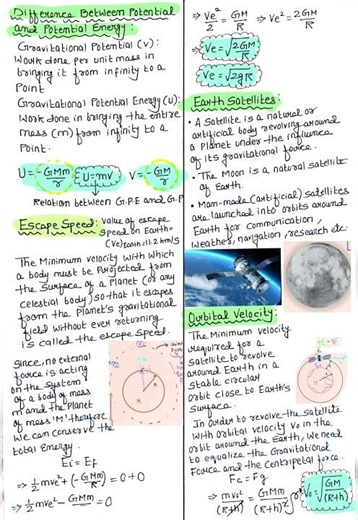 Difference Between Potential
and Potential Energy :
Gravitational Potential (V):
Work done per unit mass in
bringing it from infinity to a
Point
Gravitational Potential Energy (U):
Work done in bringing the entire
mass (m) from infinity to a
Point.
U = -GMm/r  U=mV  V = -GM/r
Relation between G.P.E and G.P
Escape Speed: Value of escape
speed on Earth=
(Ve)Earth=11.2 km/s
The Minimum velocity with which
a body must be Projected from
the Surface of a Planet (or any
celestial body) so that it escapes
from the Planet's gravitational
field without ever returning
is called the escape speed.
Since, no external
force is acting
on the System
of a body of mass
m and the Planet
of mass 'M' therefore
We can conserve the
total Energy.
Ei = Ef
⇒ 1/2 mve² + (-GMm/R) = 0+0
⇒ 1/2 mve² - GMm/R = 0
⇒ Ve²/2 = GM/R ⇒ Ve² = 2GM/R
⇒ Ve = √(2GM/R)
⇒ Ve = √2gR
Earth Satellites:
• A Satellite is a natural or
artificial body revolving around
a Planet under the influence
of its gravitational force.
• The Moon is a natural satellite
of Earth.
• Man-made (artificial) Satellites
are launched into orbits around
Earth for communication,
weather, navigation, research etc.
Orbital Velocity:
The Minimum velocity
required for a
Satellite to revolve
around Earth in a
stable circular
orbit close to Earth's
Surface.
In order to revolve the Satellite
with Orbital velocity Vo in the
orbit around the Earth, we need
to equalize the Gravitational
Force and the Centripetal force.
Fc = Fg
⇒ mvo²/(R+h) = GMm/(R+h)² ⇒ Vo = √(GM/(R+h))